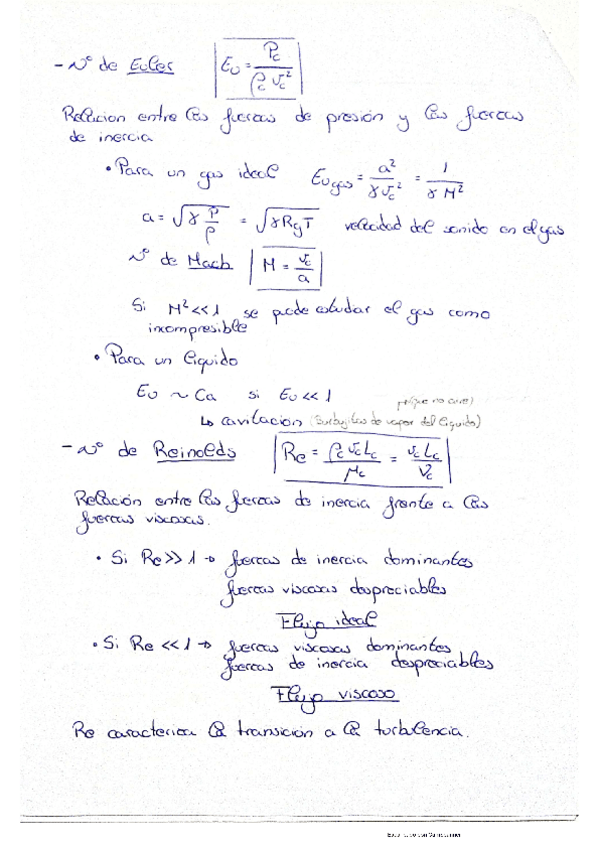 - Nº de Euler Eu = Pc / ρc vc²
Relacion entre las fuerzas de presión y las fuerzas
de inercia
• Para un gas ideal Eu gas = a² / γ vc² = 1 / γ M²
a = √(γ P/ρ) = √(γ Rg T) velocidad del sonido en el gas
Nº de Mach M = vc / a
Si M² << 1 se puede estudiar el gas como
incompresible
• Para un liquido
Eu ~ Ca si Eu << 1
↳ cavitacion (burbujitas de vapor del liquido)
- Nº de Reinolds Re = ρc vc Lc / μc = vc Lc / νc
Relación entre las fuerzas de inercia frente a las
fuerzas viscosas.
• Si Re >> 1 → fuerzas de inercia dominantes
fuerzas viscosas despreciables
Flujo ideal
• Si Re << 1 → fuerzas viscosas dominantes
fuerzas de inercia despreciables
Flujo viscoso
Re caracteriza la transición a la turbulencia.